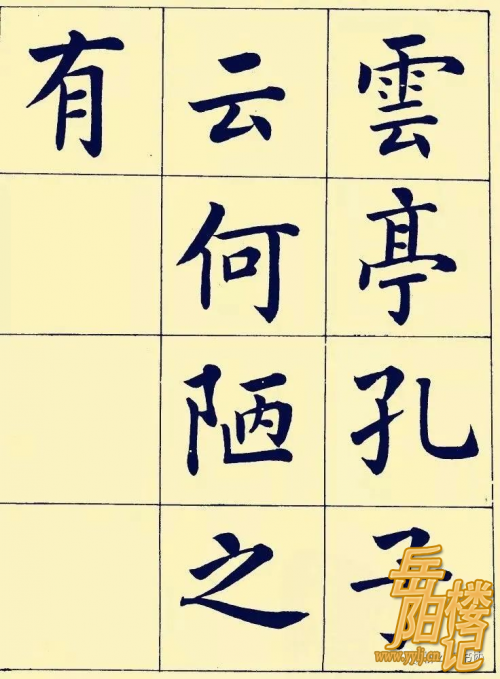 雲亭孔子
云何陋之
有
岳阳楼记
www.yylj.cn